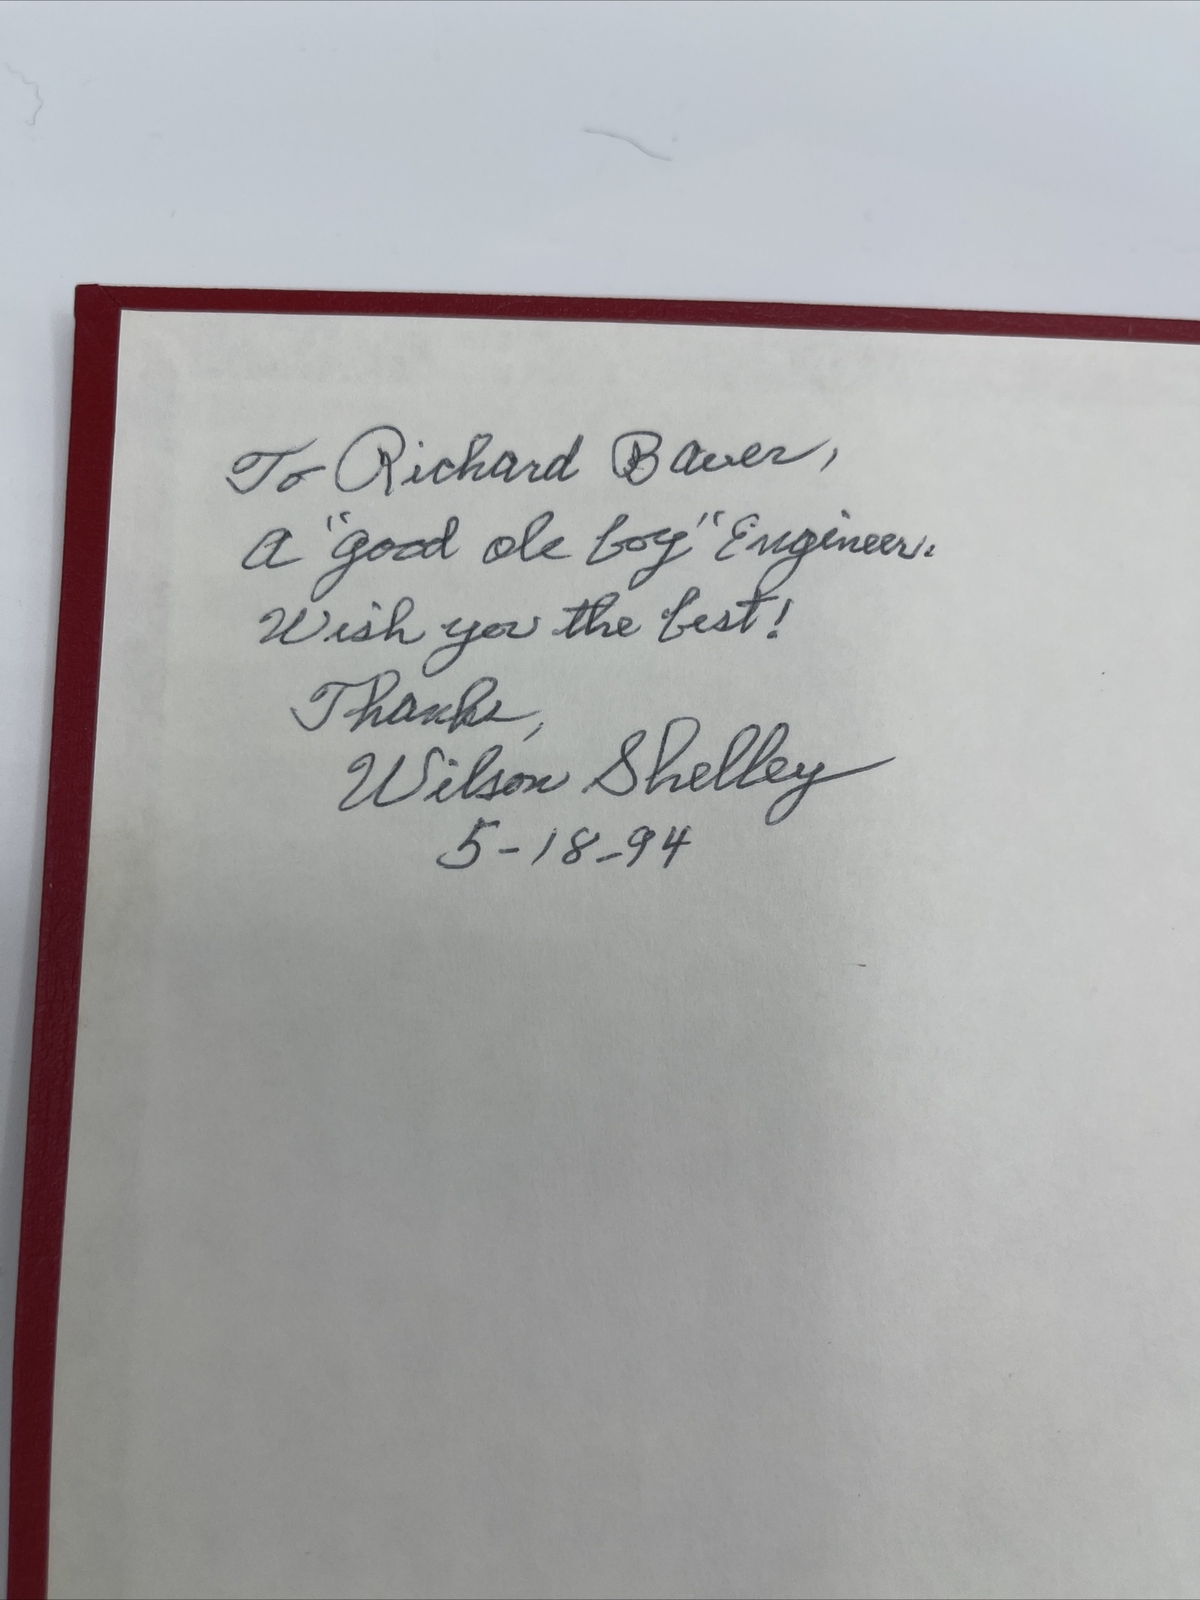 To Richard Bauer,
A "good ole boy" Engineer.
Wish you the best!
Thanks,
Wilson Shelley
5-18-94